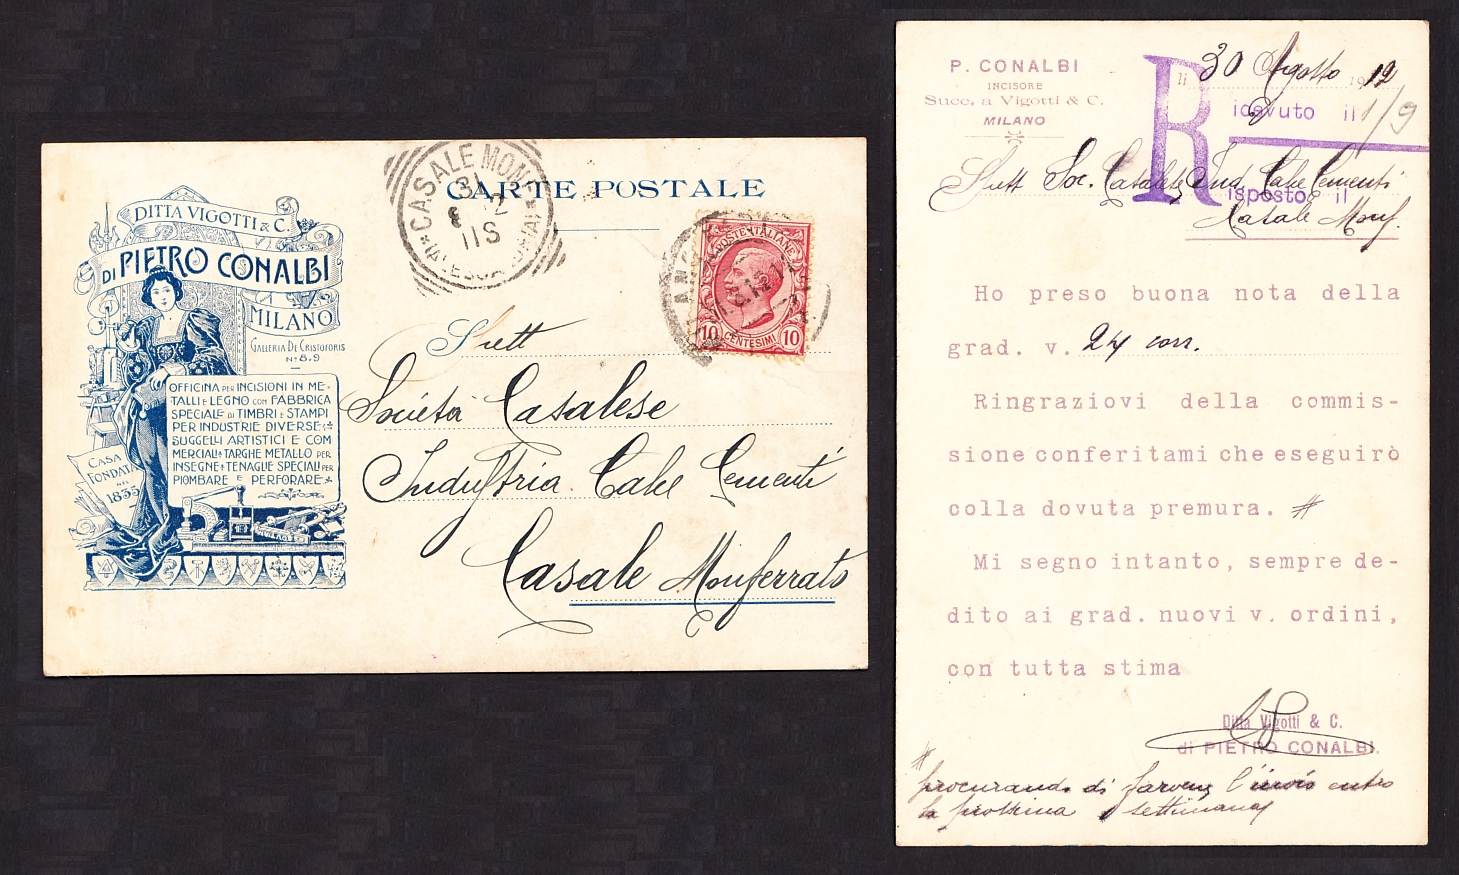 CARTE POSTALE
DITTA VIGOTTI & C.
DI PIETRO CONALBI
MILANO
GALLERIA DE CRISTOFORIS
Nⁱ 8.9
OFFICINA PER INCISIONI IN ME-
TALLI E LEGNO CON FABBRICA
SPECIALE DI TIMBRI E STAMPI
PER INDUSTRIE DIVERSE
SUGGELLI ARTISTICI E COM
MERCIALI TARGHE METALLO PER
INSEGNE TENAGLIE SPECIALI PER
PIOMBARE E PERFORARE
CASA
FONDATA
NEL
1835
CASALE MONF
11S
POSTE ITALIANE
10 CENTESIMI 10
Sett
Società Casalese
Industria Calce Cementi
Casale Monferrato
P. CONALBI
INCISORE
Succ. a Vigotti & C.
MILANO
li 30 Agosto 1912
Ricevuto il 1/9
Risposto il
Sett Soc. Casalese Ind Calce Cementi
Casale Monf.
Ho preso buona nota della
grad. v. 24 corr.
Ringraziovi della commis-
sione conferitami che eseguirò
colla dovuta premura. #
Mi segno intanto, sempre de-
dito ai grad. nuovi v. ordini,
con tutta stima
Ditta Vigotti & C.
di PIETRO CONALBI.
# procurando di farvene l'invio entro
la prossima settimana